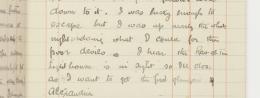 down to it. I was lucky enough to
escape but I was up nearly the whole
night doing what I could for the
poor devils. I hear the
lighthouse is in sight so I'll close
as I want to get the first glimpse of
Alexandria